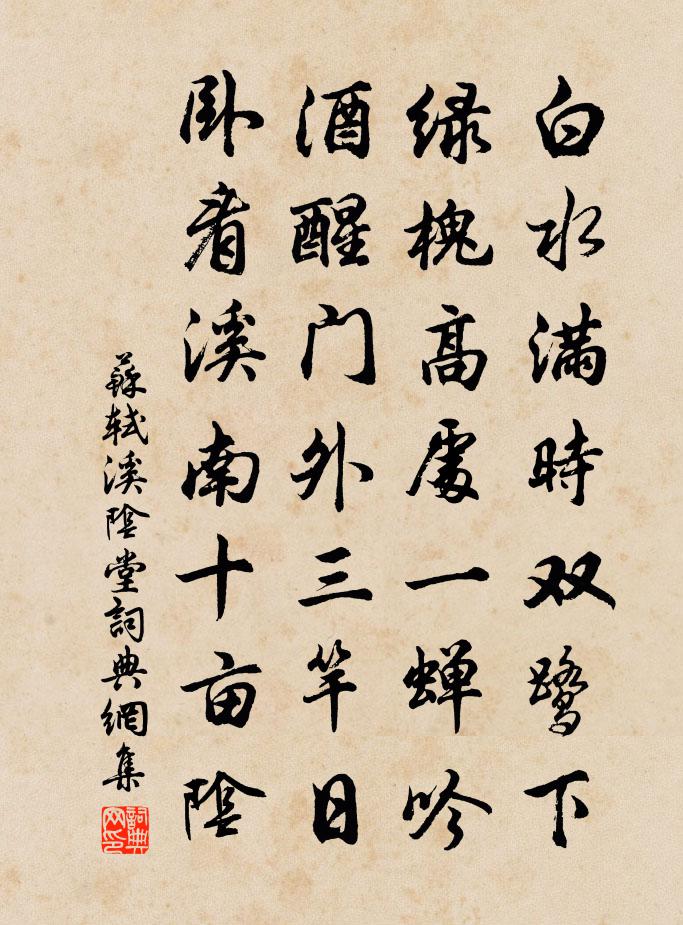 白水满時双鹭下
绿槐高處一蝉吟
酒醒门外三竿日
卧看溪南十亩陰
蘇轼溪陰堂詞典網集
詞典网印